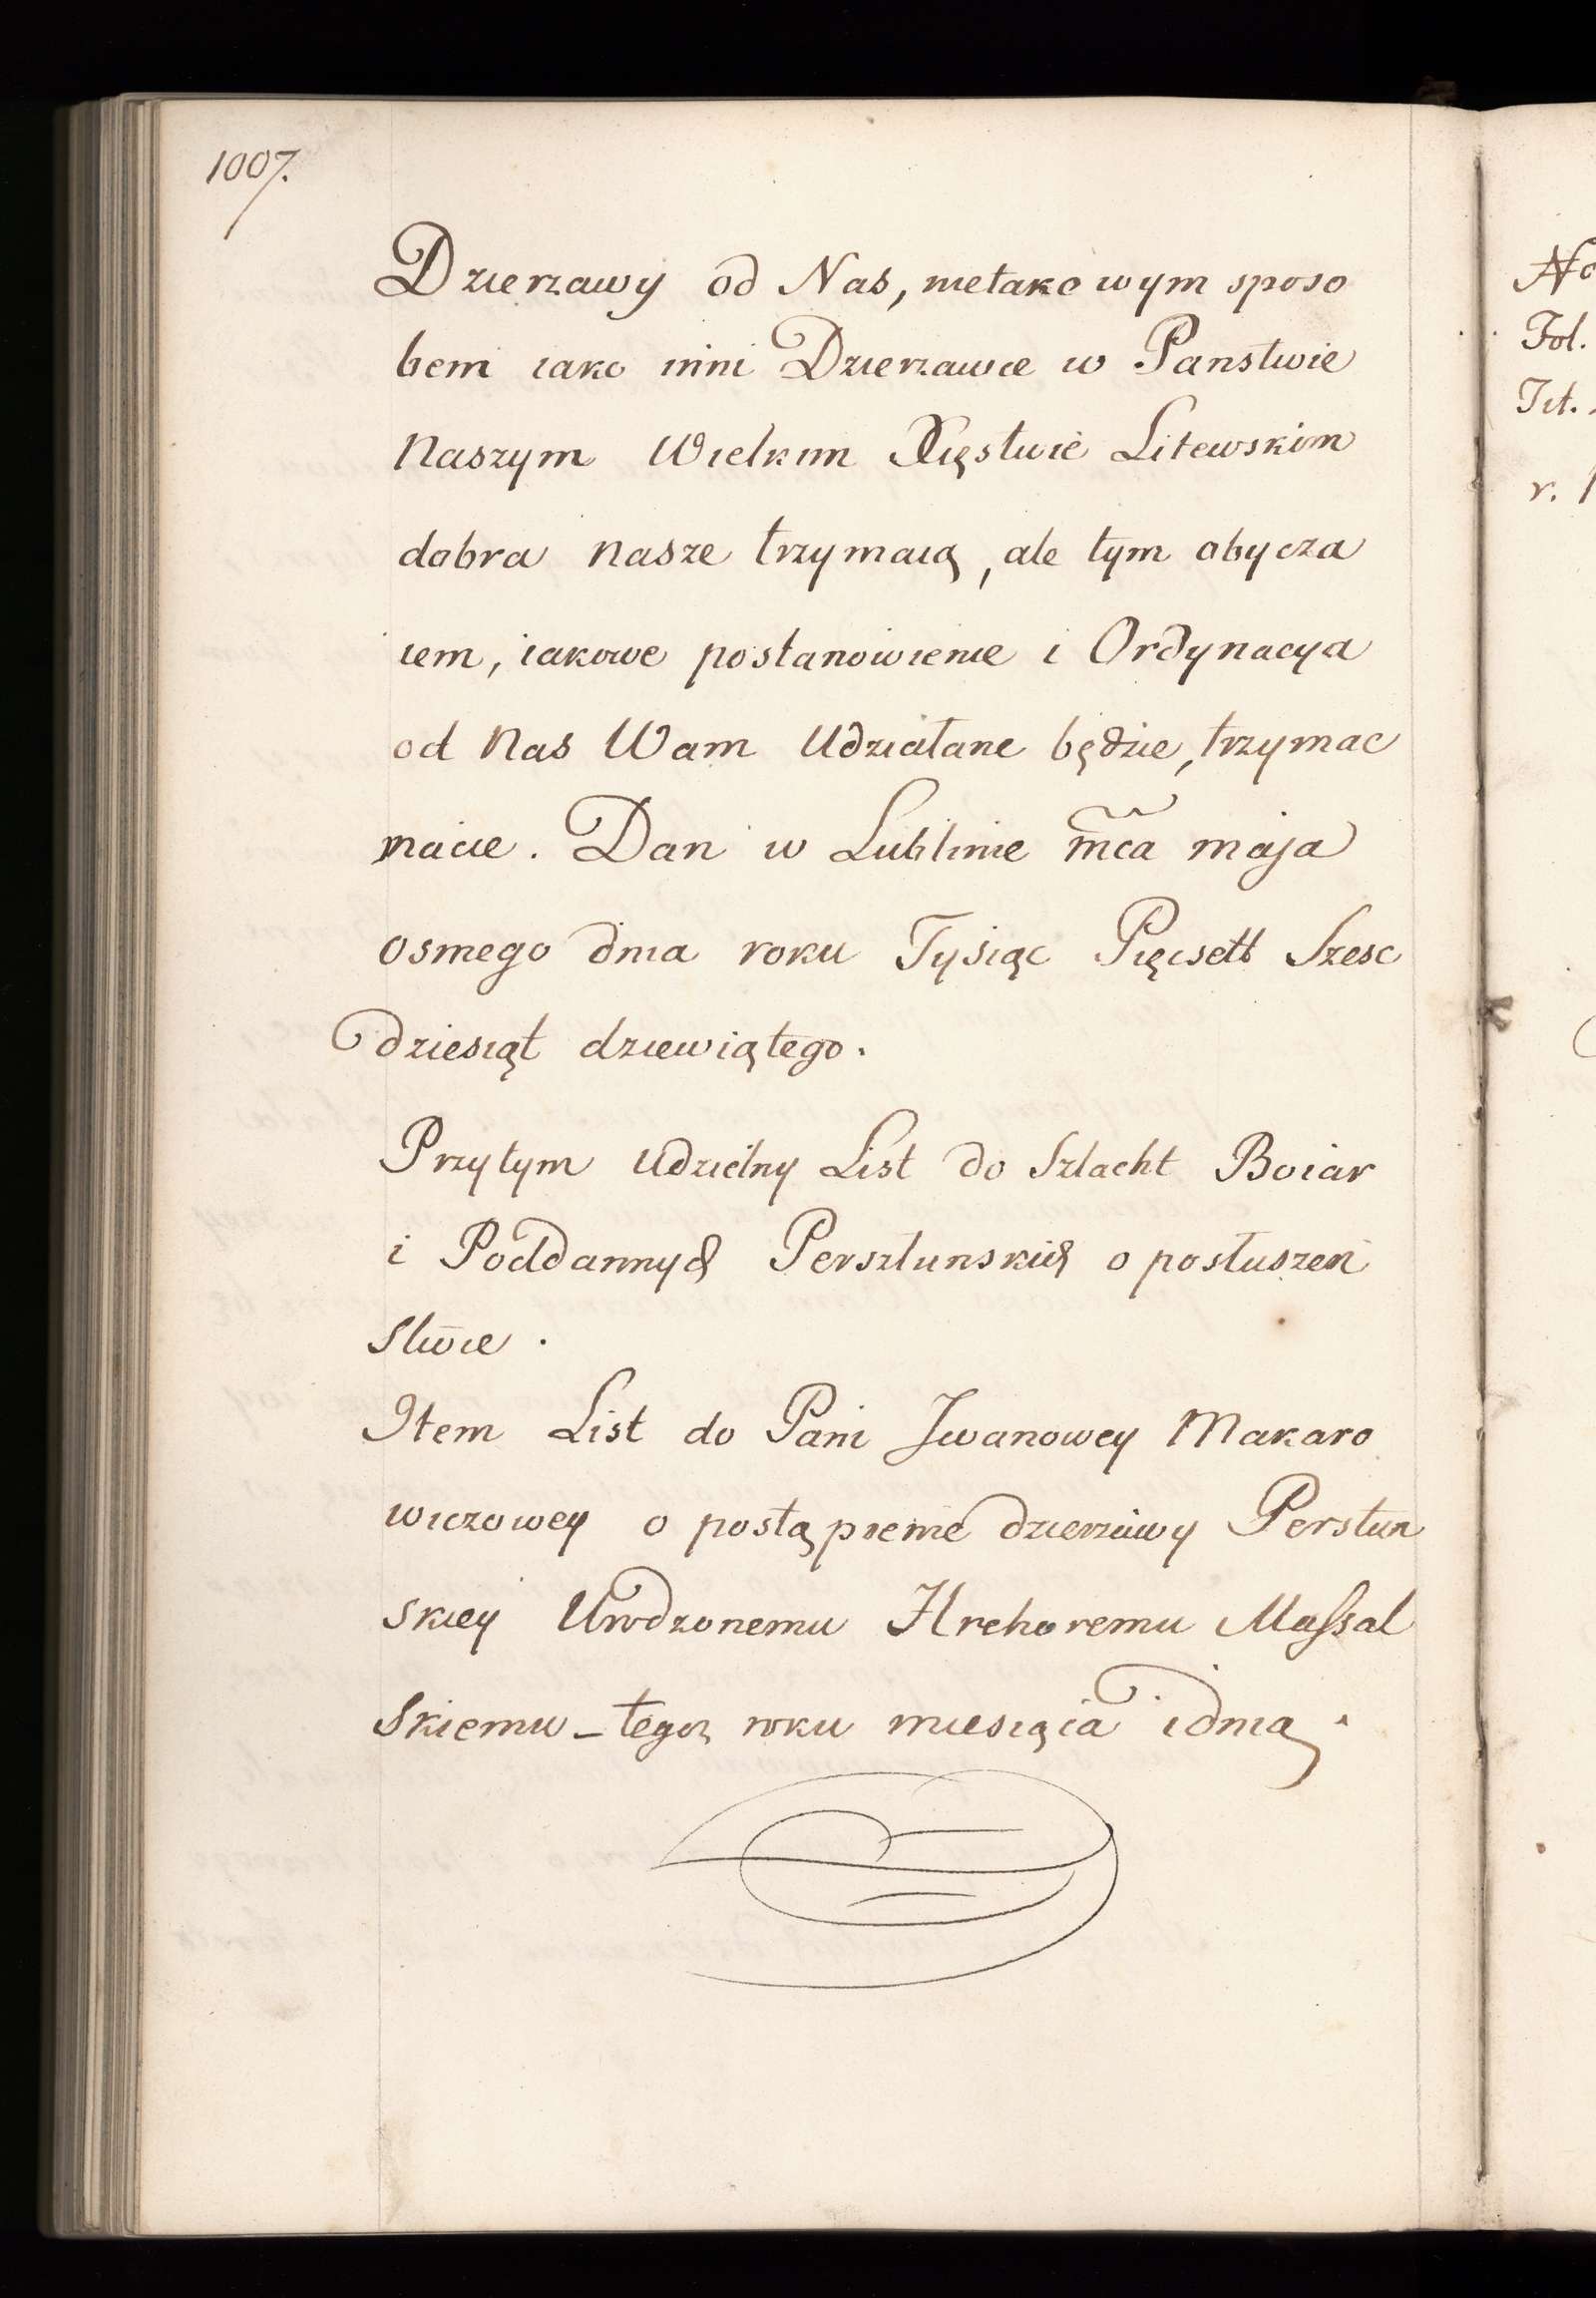 1007.
Dzierzawy od Nas, nietakowym sposo
bem iako inni Dzierzawce w Panstwie
Naszym Wielkim Xięstwie Litewskim
dobra nasze trzymaią, ale tym obycza
iem, iakowe postanowienie i Ordynacya
od Nas Wam Udziałane będzie, trzymac
macie. Dan w Lublinie mca maja
osmego dnia roku Tysiąc Pięcsett Szesc
dziesiąt dziewiątego.
Przytym udzielny List do Szlacht Boiar
i Poddannych Persztunskich o posłuszen
stwie.
Item List do Pani Jwanowey Makaro
wiczowey o postąpienie dzierzawy Perstun
skiey Urodzonemu Hrehoremu Massal
skiemu – tegoz roku miesiąca i dnia.
No
Fol.
Tit.
r. 1